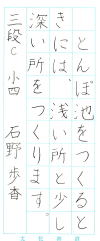 とんぼ池をつくると
きには、浅い所と少し
深い所をつくります。
三段C 小四 石野歩香